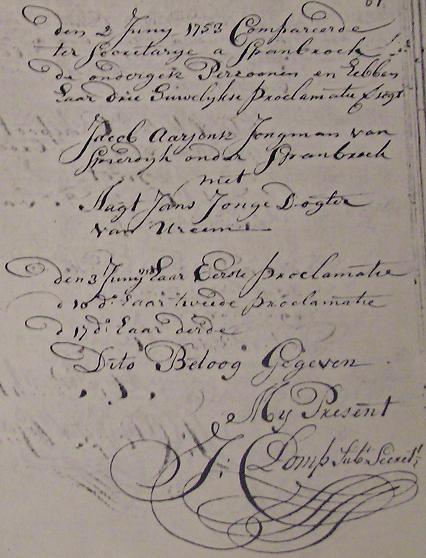 den 2 Juny 1753 Compareerde
ter Secretarye a Spanbroek
de ondergesz Persoonen en hebben
haar drie huwelykse proclamatie
Jacob Aarjensz Jongman van
Spierdyk onder Spanbroek
met
Aagt Jans Jonge Dogter
van Ureem
den 3 Juny haar Eerste proclamatie
d 10 do haar tweede proclamatie
d 17 do haar derde
Dito Betoog Gegeven
My Present
J: C Domp Subt Secrets